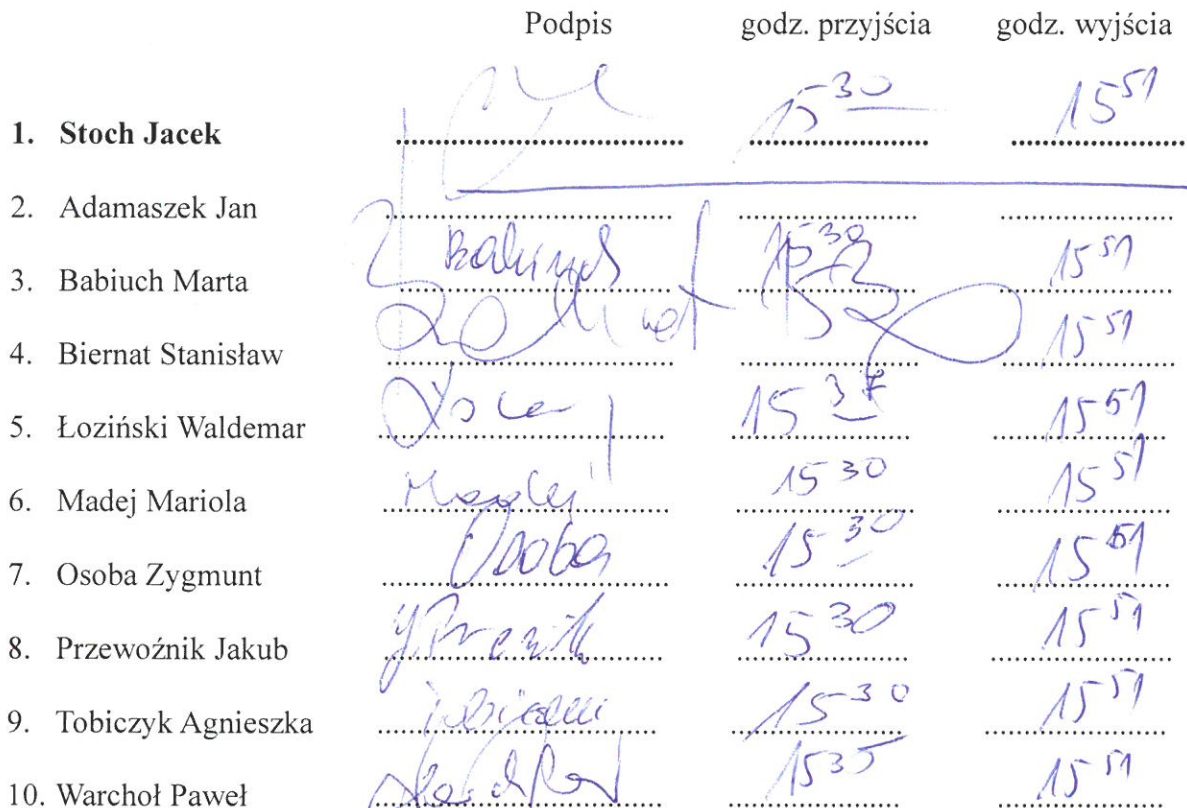 Podpis godz. przyjścia godz. wyjścia
1. Stoch Jacek 15 30 15 51
2. Adamaszek Jan
3. Babiuch Marta Babiuch 15 30 15 51
4. Biernat Stanisław 15 51
5. Łoziński Waldemar 15 15 51
6. Madej Mariola Madej 15 30 15 51
7. Osoba Zygmunt Osoba 15 30 15 51
8. Przewoźnik Jakub 15 30 15 51
9. Tobiczyk Agnieszka 15 30 15 51
10. Warchoł Paweł 15 35 15 51